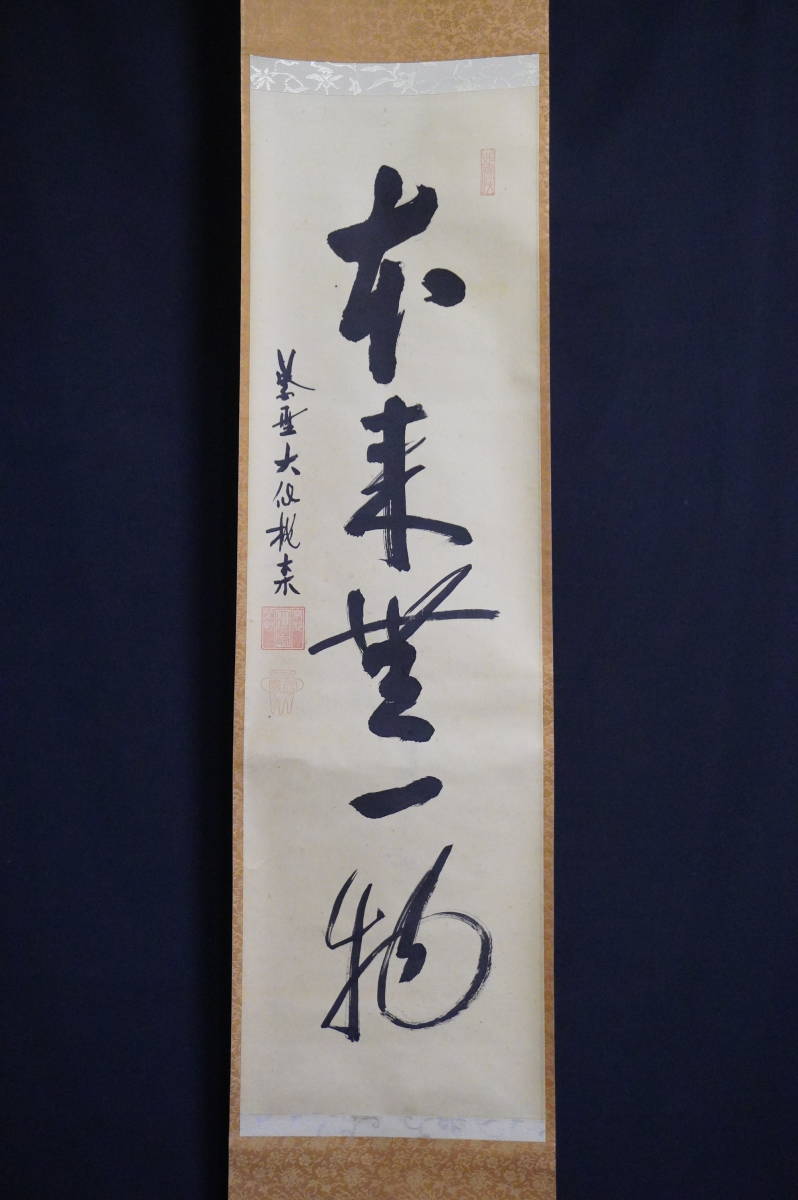 本来無一物
紫野大仙桃来